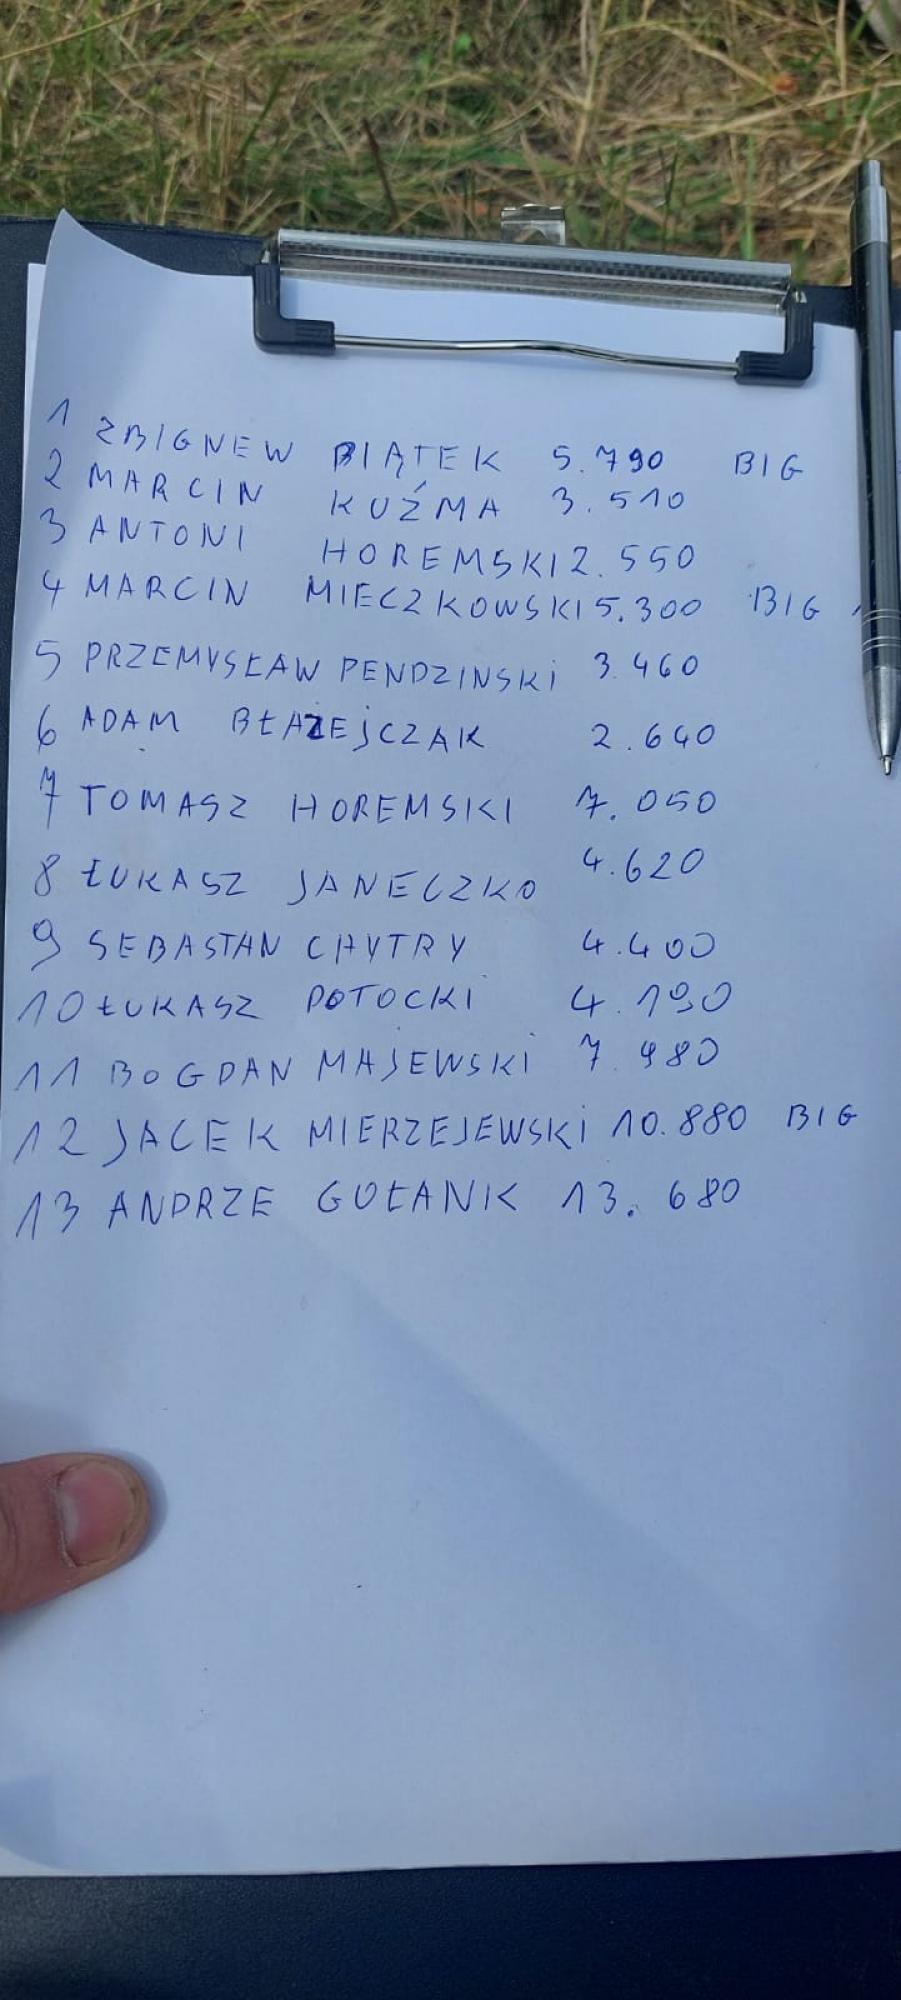 1 ZBIGNEW PIĄTEK 5.790 BIG
2 MARCIN KUŹMA 3.510
3 ANTONI HOREMSKI 2.550
4 MARCIN MIECZKOWSKI 5.300 BIG
5 PRZEMYSŁAW PENDZINSKI 3.460
6 ADAM BŁAŻEJCZAK 2.640
7 TOMASZ HOREMSKI 7.050
8 ŁUKASZ JANECZKO 4.620
9 SEBASTAN CHYTRY 4.400
10 ŁUKASZ POTOCKI 4.190
11 BOGDAN MAJEWSKI 7.980
12 JACEK MIERZEJEWSKI 10.880 BIG
13 ANDRZE GOŁANIK 13.680